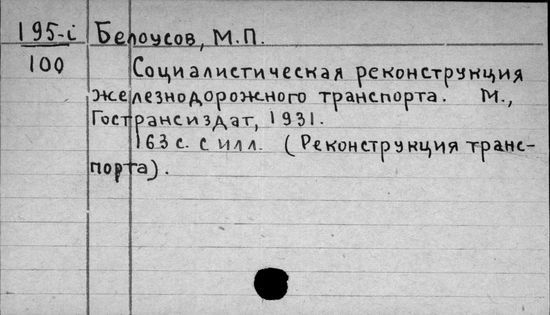 195-i Белоусов, М.П.
100 Социалистическая реконструкция
железнодорожного транспорта. М.,
Гострансиздат, 1931.
163 с. с илл. (Реконструкция транс-
порта).